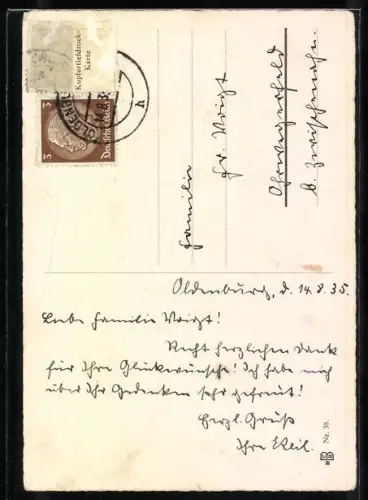 Kupfertiefdruck-
Karte
3 Deutsches Reich 3
OLDENB
h
Familie
Fr. Voigt
b. Zwischenahn.
Oldenburg, d. 14.8.35.
Liebe Familie Voigt!
Recht herzlichen Dank
für Ihre Glükwünsche! Ich habe mich
über Ihr Gedenken sehr gefreut!
Herzl. Gruß
Ihre Keil.
Nr. 38.